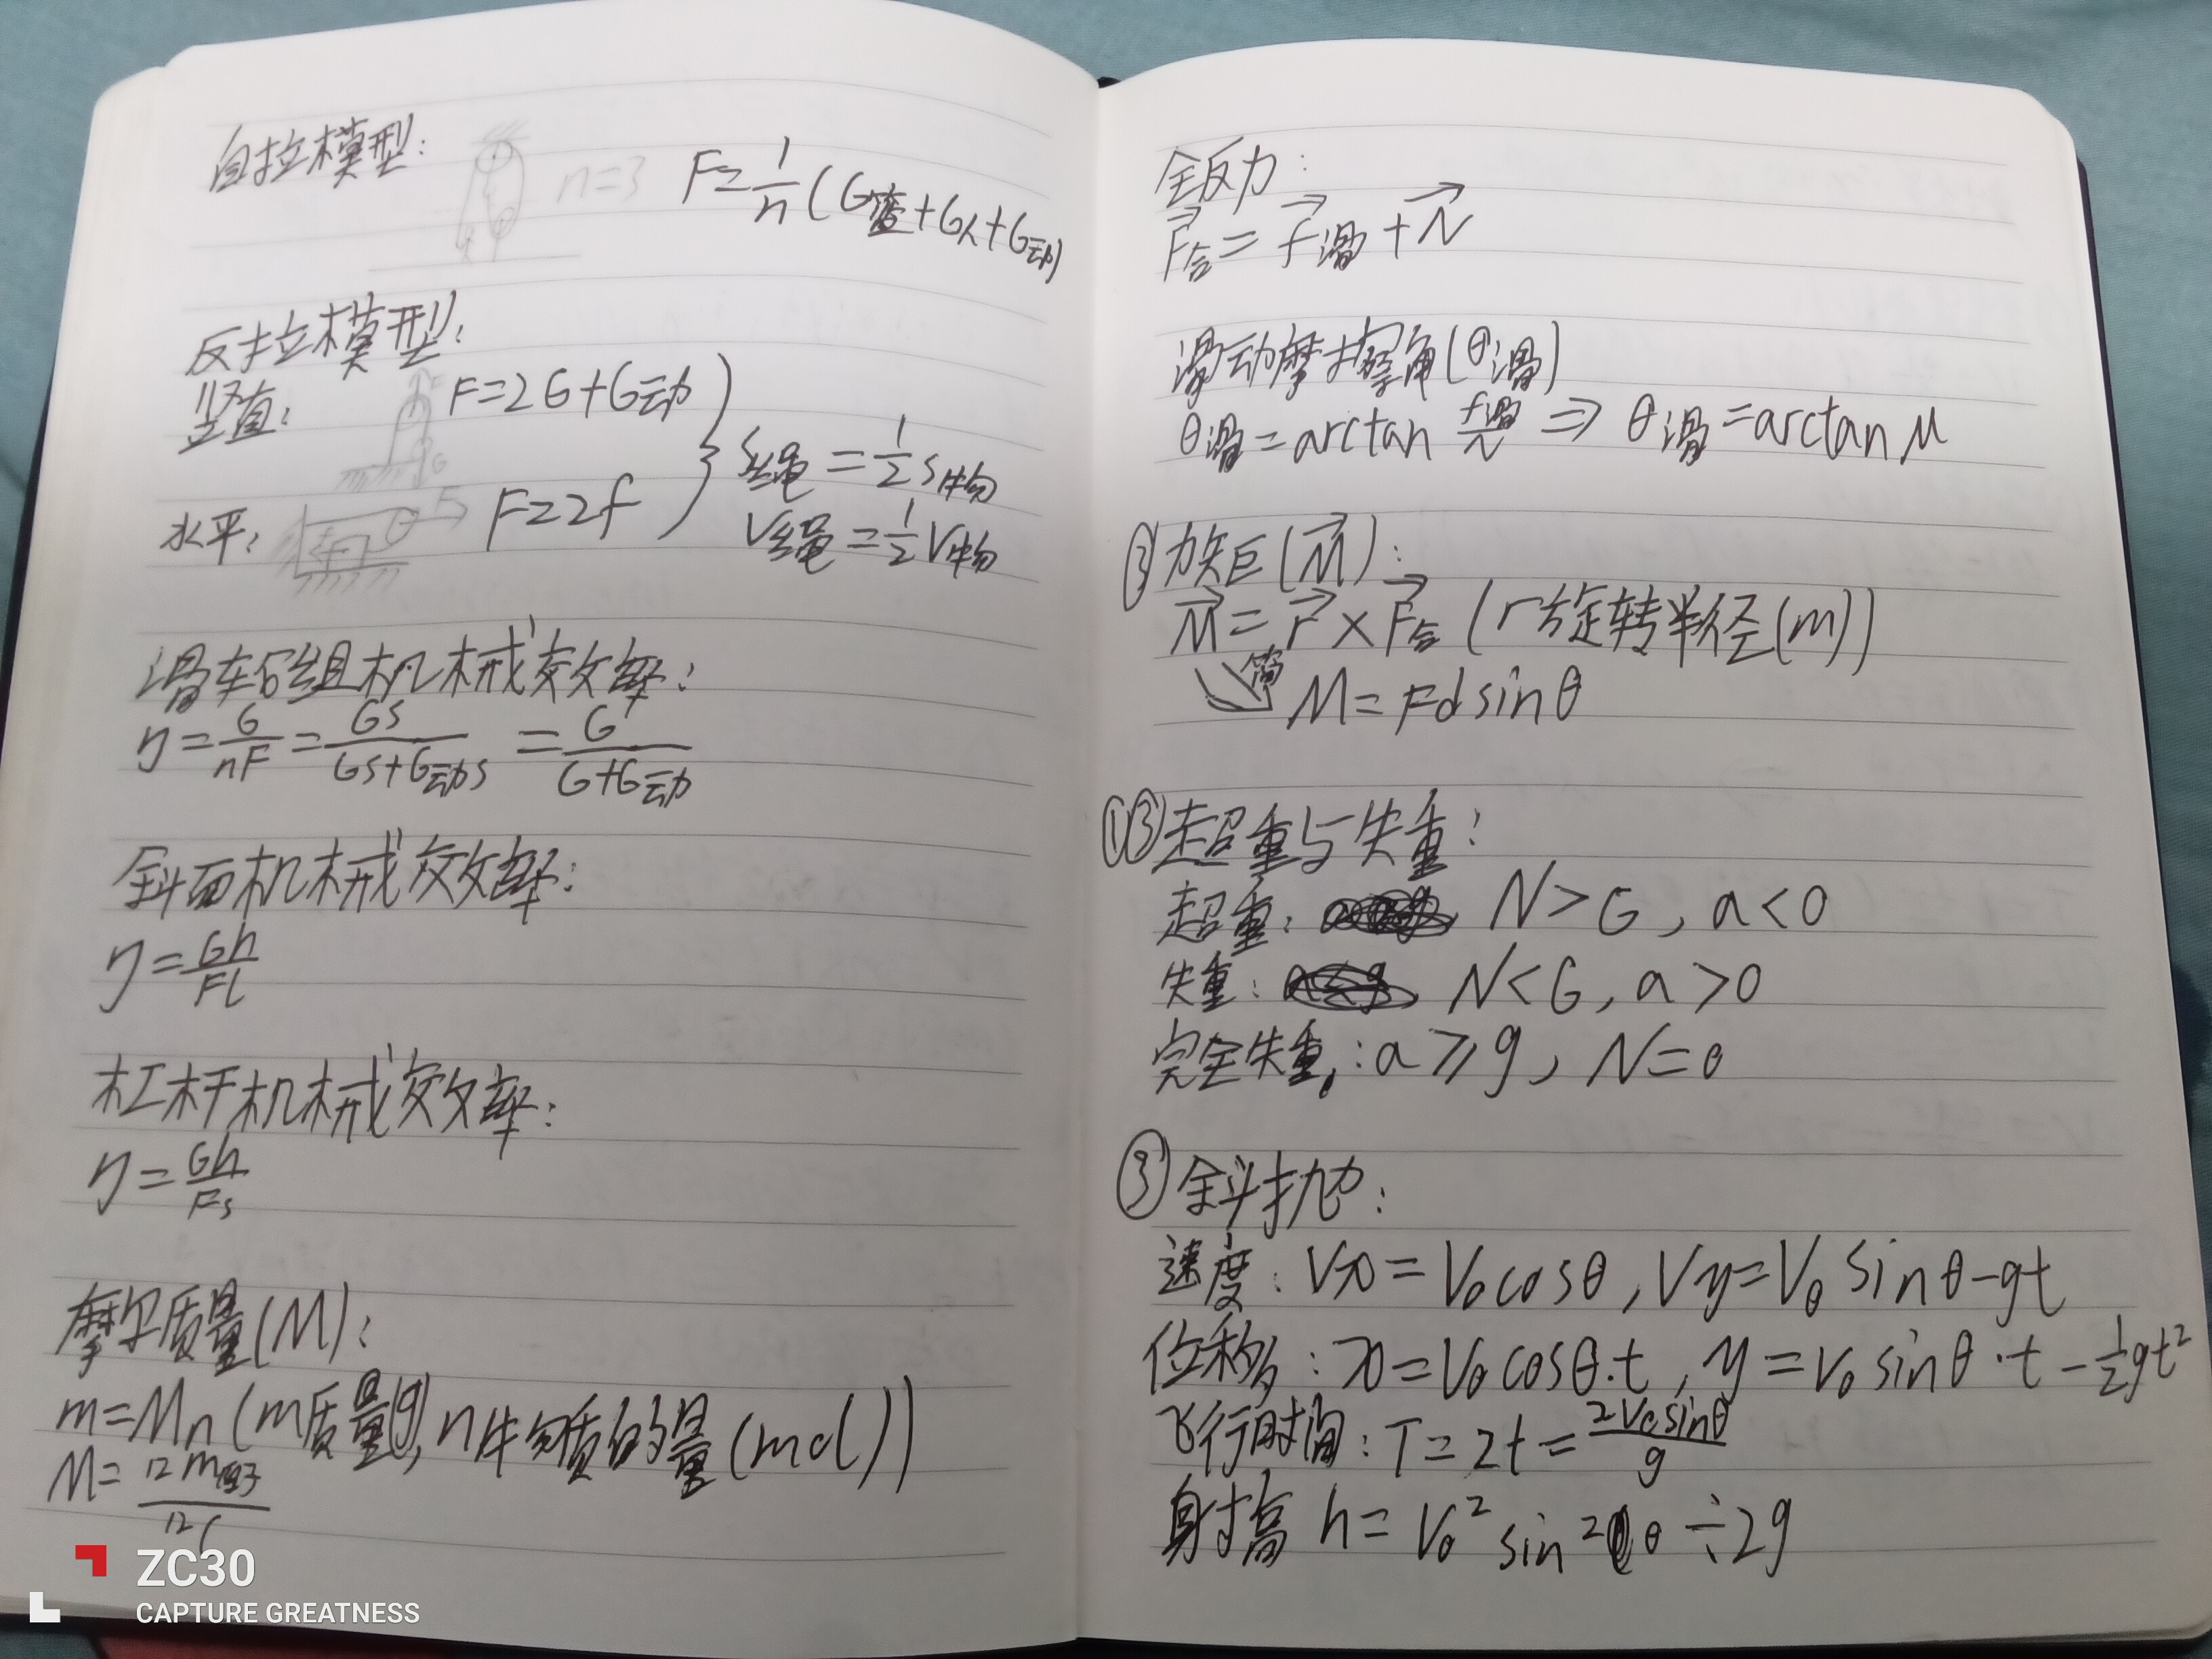 自拉模型:
n=3
F=1/n(G篮+G人+G动)
反拉模型:
竖直:
F=2G+G动
水平:
F=2f
S绳=1/2 S物
V绳=1/2 V物
滑轮组机械效率:
η=G/nF=GS/GS+G动S=G/G+G动
斜面机械效率:
η=Gh/Fl
杠杆机械效率:
η=Gh/Fs
摩尔质量(M):
m=Mn(m质量(g),n物质的量(mol))
M=12m原子/12C
ZC30
CAPTURE GREATNESS
全反力:
F合=f滑+N
滑动摩擦角(θ滑)
θ滑=arctan f滑/N ⇒ θ滑=arctan μ
力矩(M):
M=r×F合(r旋转半径(m))
简
M=Fdsinθ
①③超重与失重:
超重: N>G,a<0
失重: N<G,a>0
完全失重:a≥g,N=0
③斜抛:
速度:Vx=V₀cosθ,Vy=V₀sinθ-gt
位移:x=V₀cosθ·t,y=V₀sinθ·t-1/2gt²
飞行时间:T=2t=2V₀sinθ/g
射高 h=V₀²sin²θ÷2g